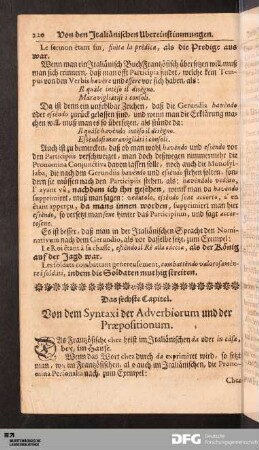 220 Von den Italiänischen Ubereinstimmungen.
Le sermon étant fini, finita la prédica, als die Predigt aus
war.
Wenn man ein Italiänisch Buch Französisch übersetzen will, muß
man sich erinnern, daß man offt Participia findet, welche kein Tem-
pus von den Verbis havére und essere vor sich haben, als:
Il quale intéso il diségno.
Maravigliatisi i consoli.
Da ist denn ein unfehlbar Zeichen, daß die Gerundia havéndo
oder eßéndo zurück gelassen sind, und wenn man die Erklärung ma-
chen will, muß man es so übersetzen, als stünde da:
Il quale havéndo intéso il diségno.
Eßéndosi maravigliati i consoli.
Noch ist zu bemercken, daß ob man wohl havéndo und eßéndo vor
den Participiis verschweiget, man doch deswegen nimmermehr die
Pronomina Conjunctiva darvon lassen soll, noch auch die Monosyl-
laba, die nach den Gerundiis havéndo und eßéndo stehen sollen, son-
dern sie müssen nach den Participiis stehen, als: havéndolo vedúto,
l' ayant vû, nachdem ich ihn gesehen, wenn man da havéndo
supprimirt, muß man sagen: vedútolo, eßéndosi accórto, s'en
étant apperçu, da mans innen worden, supprimirt man hier
eßéndo, so setzet man sene hinter das Participium, und sagt accor-
tosene.
Es ist besser, daß man in der Italiänischen Sprach den Nomi-
nativum nach dem Gerundio, als vor daßelbe setzt, zum Exempel:
Le Roi étant à la chasse, eßéndo il Ré alla cáccia, als der König
auf der Jagd war.
Les soldats combattant genereusement, combatténdo valorosamén-
te i soldáti, indem die Soldaten muthig streiten.
Das sechste Capitel.
Von dem Syntaxi der Adverbiorum und der
Præpositionum.
Das Französische chez heist im Italiänischen da oder in casa,
bey, im Hause.
Wenn das Wort chez durch da exprimirt wird, so setzt
man, wie im Französischen, also auch im Italiänischen, die Prono-
mina Personalia nach, zum Exempel:
Chez
DFG Deutsche Forschungsgemeinschaft